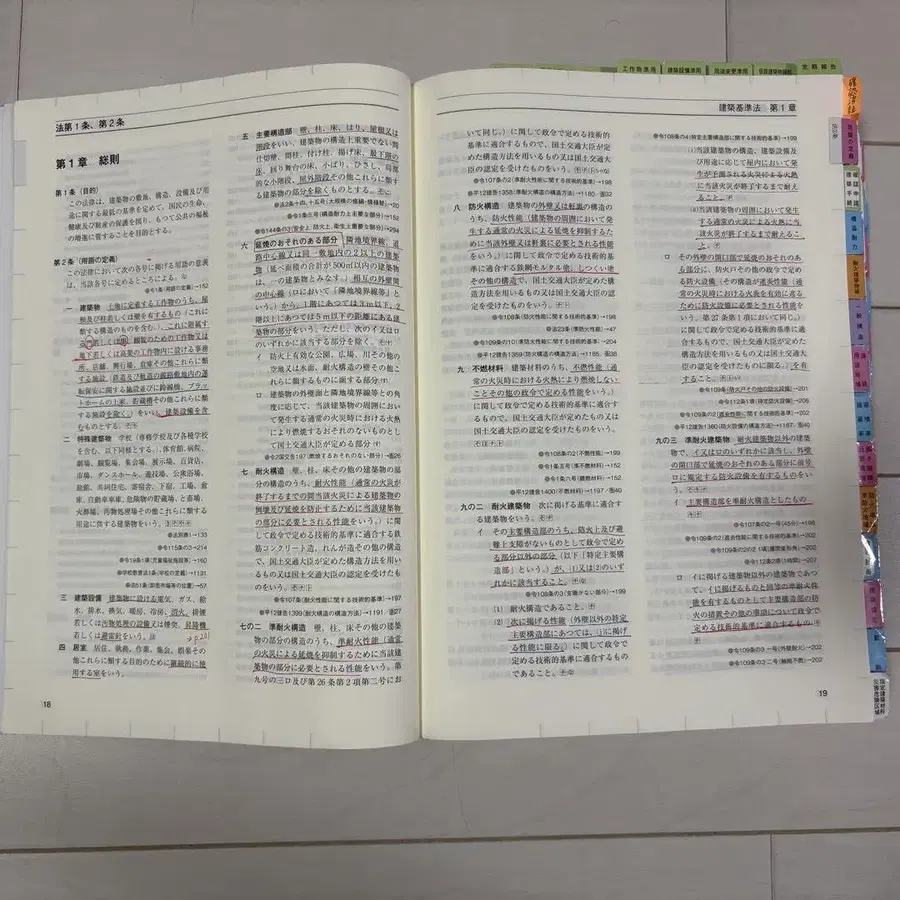 法第1条、第2条
第1章 総則
第1条（目的）
この法律は、建築物の敷地、構造、設備及び用
途に関する最低の基準を定めて、国民の生命、
健康及び財産の保護を図り、もつて公共の福祉
の増進に資することを目的とする。
第2条（用語の定義）
この法律において次の各号に掲げる用語の意義
は、当該各号に定めるところによる。
●令1条（用語の定義）→152
一 建築物 土地に定着する工作物のうち、屋
根及び柱若しくは壁を有するもの（これに
類する構造のものを含む。）、これに附属す
る門若しくは塀、観覧のための工作物又は
地下若しくは高架の工作物内に設ける事務
所、店舗、興行場、倉庫その他これらに類
する施設（鉄道及び軌道の線路敷地内の運
転保安に関する施設並びに跨線橋、プラッ
トホームの上家、貯蔵槽その他これらに類
する施設を除く。）をいい、建築設備を含
むものとする。
二 特殊建築物 学校（専修学校及び各種学校
を含む。以下同様とする。）、体育館、病院、
劇場、観覧場、集会場、展示場、百貨店、
市場、ダンスホール、遊技場、公衆浴場、
旅館、共同住宅、寄宿舎、下宿、工場、倉
庫、自動車車庫、危険物の貯蔵場、と畜場、
火葬場、汚物処理場その他これらに類する
用途に供する建築物をいう。
●法別表1→133
●令115条の3→214
●令19条1項（児童福祉施設等）→160
●学校教育法1条（学校の定義）→1131
●法51条（卸売市場等の位置）→57
三 建築設備 建築物に設ける電気、ガス、給
水、排水、換気、暖房、冷房、消火、排煙
若しくは汚物処理の設備又は煙突、昇降機
若しくは避雷針をいう。
四 居室 居住、執務、作業、集会、娯楽その
他これらに類する目的のために継続的に使
用する室をいう。
18
五 主要構造部 壁、柱、床、はり、屋根又は
階段をいい、建築物の構造上重要でない間
仕切壁、間柱、付け柱、揚げ床、最下階の
床、回り舞台の床、小ばり、ひさし、局部
的な小階段、屋外階段その他これらに類す
る建築物の部分を除くものとする。
●令1条三号（構造耐力上主要な部分）→152
六 延焼のおそれのある部分 隣地境界線、道
路中心線又は同一敷地内の2以上の建築
物（延べ面積の合計が500㎡以内の建築物
は、一の建築物とみなす。）相互の外壁間
の中心線（ロにおいて「隣地境界線等」と
いう。）から、1階にあつては3m以下、2
階以上にあつては5m以下の距離にある建
築物の部分をいう。ただし、次のイ又はロ
のいずれかに該当する部分を除く。
イ 防火上有効な公園、広場、川その他の
空地又は水面、耐火構造の壁その他こ
れらに類するものに面する部分
ロ 建築物の外壁面と隣地境界線等との角
度に応じて、当該建築物の周囲におい
て発生する通常の火災時における火熱
により燃焼するおそれのないものとし
て国土交通大臣が定める部分
●令2国交告197（燃焼するおそれのない部分）→図26
七 耐火構造 壁、柱、床その他の建築物の部
分の構造のうち、耐火性能（通常の火災が
終了するまでの間当該火災による建築物の
倒壊及び延焼を防止するために当該建築物
の部分に必要とされる性能をいう。）に関
して政令で定める技術的基準に適合する鉄
筋コンクリート造、れんが造その他の構造
で、国土交通大臣が定めた構造方法を用い
るもの又は国土交通大臣の認定を受けたも
のをいう。
●令107条（耐火性能に関する技術的基準）→197
●平12建告1399（耐火構造の構造方法）→1191 図27
七の二 準耐火構造 壁、柱、床その他の建築
物の部分の構造のうち、準耐火性能（通常
の火災による延焼を抑制するために当該建
築物の部分に必要とされる性能をいう。第
九号の三ロ及び第26条第2項第二号にお
建築基準法 第1章
いて同じ。）に関して政令で定める技術的
基準に適合するもので、国土交通大臣が定
めた構造方法を用いるもの又は国土交通大
臣の認定を受けたものをいう。
●令107条の2（準耐火性能に関する技術的基準）→198
●平12建告1358（準耐火構造の構造方法）→1180 図32
八 防火構造 建築物の外壁又は軒裏の構造の
うち、防火性能（建築物の周囲において発
生する通常の火災による延焼を抑制するた
めに当該外壁又は軒裏に必要とされる性能
をいう。）に関して政令で定める技術的基
準に適合する鉄網モルタル塗、しつくい塗
その他の構造で、国土交通大臣が定めた構
造方法を用いるもの又は国土交通大臣の認
定を受けたものをいう。
●令108条（防火性能に関する技術的基準）→198
●法23条（準防火性能）→47
●令109条の10（準防火性能に関する技術的基準）→204
●平12建告1359（防火構造の構造方法）→1185 図38
九 不燃材料 建築材料のうち、不燃性能（通
常の火災時における火熱により燃焼しない
ことその他の政令で定める性能をいう。）
に関して政令で定める技術的基準に適合す
るもので、国土交通大臣が定めたもの又は
国土交通大臣の認定を受けたものをいう。
●令108条の2（不燃性能）→199
●平12建告1400（不燃材料）→1197 図40
九の二 耐火建築物 次に掲げる基準に適合す
る建築物をいう。
イ その主要構造部のうち、防火上及び避
難上支障がないものとして政令で定め
る部分以外の部分（以下「特定主要構
造部」という。）が、⑴又は⑵のいず
れかに該当すること。
●令108条の3
⑴ 耐火構造であること。
⑵ 次に掲げる性能（外壁以外の特定
主要構造部にあつては、(i)に掲げ
る性能に限る。）に関して政令で定
める技術的基準に適合するもの
であること。
●令108条の4（特定主要構造部に関する技術的基準）→199
(i)当該建築物の構造、建築設備及
び用途に応じて屋内において発
生が予測される火災による火熱
に当該火災が終了するまで耐え
ること。
(ii)当該建築物の周囲において発生
する通常の火災による火熱に当
該火災が終了するまで耐えるこ
と。
ロ その外壁の開口部で延焼のおそれのあ
る部分に、防火戸その他の政令で定め
る防火設備（その構造が遮炎性能（通
常の火災時における火炎を有効に遮る
ために防火設備に必要とされる性能を
いう。第27条第1項において同じ。）に
関して政令で定める技術的基準に適合
するもので、国土交通大臣が定めた構
造方法を用いるもの又は国土交通大臣
の認定を受けたものに限る。）を有
すること。
●令109条（防火戸その他の防火設備）→201
●令112条1項（特定防火設備）→206
●令109条の2（遮炎性能に関する技術的基準）→202
●平12建告1360（防火設備の構造方法）→1187 図40
九の三 準耐火建築物 耐火建築物以外の建築
物で、イ又はロのいずれかに該当し、外壁
の開口部で延焼のおそれのある部分に前号
ロに規定する防火設備を有するものをい
う。
イ 主要構造部を準耐火構造としたもの
●令107条の2一号（45分）→198
●令109条の2（遮炎性能に関する技術的基準）→202
●令109条の2の2 1項（層間変形角）→202
●令112条2項（1時間）→206
ロ イに掲げる建築物以外の建築物であつ
て、イに掲げるものと同等の準耐火性
能を有するものとして主要構造部の防
火の措置その他の事項について政令で
定める技術的基準に適合するもの
●令109条の3 一号（外壁耐火）→202
●令109条の3 二号（軸組不燃）→202
19
工作物準用
建築設備準用
用途変更準用
定期報告
構造耐力
耐火建築物等
一般構造